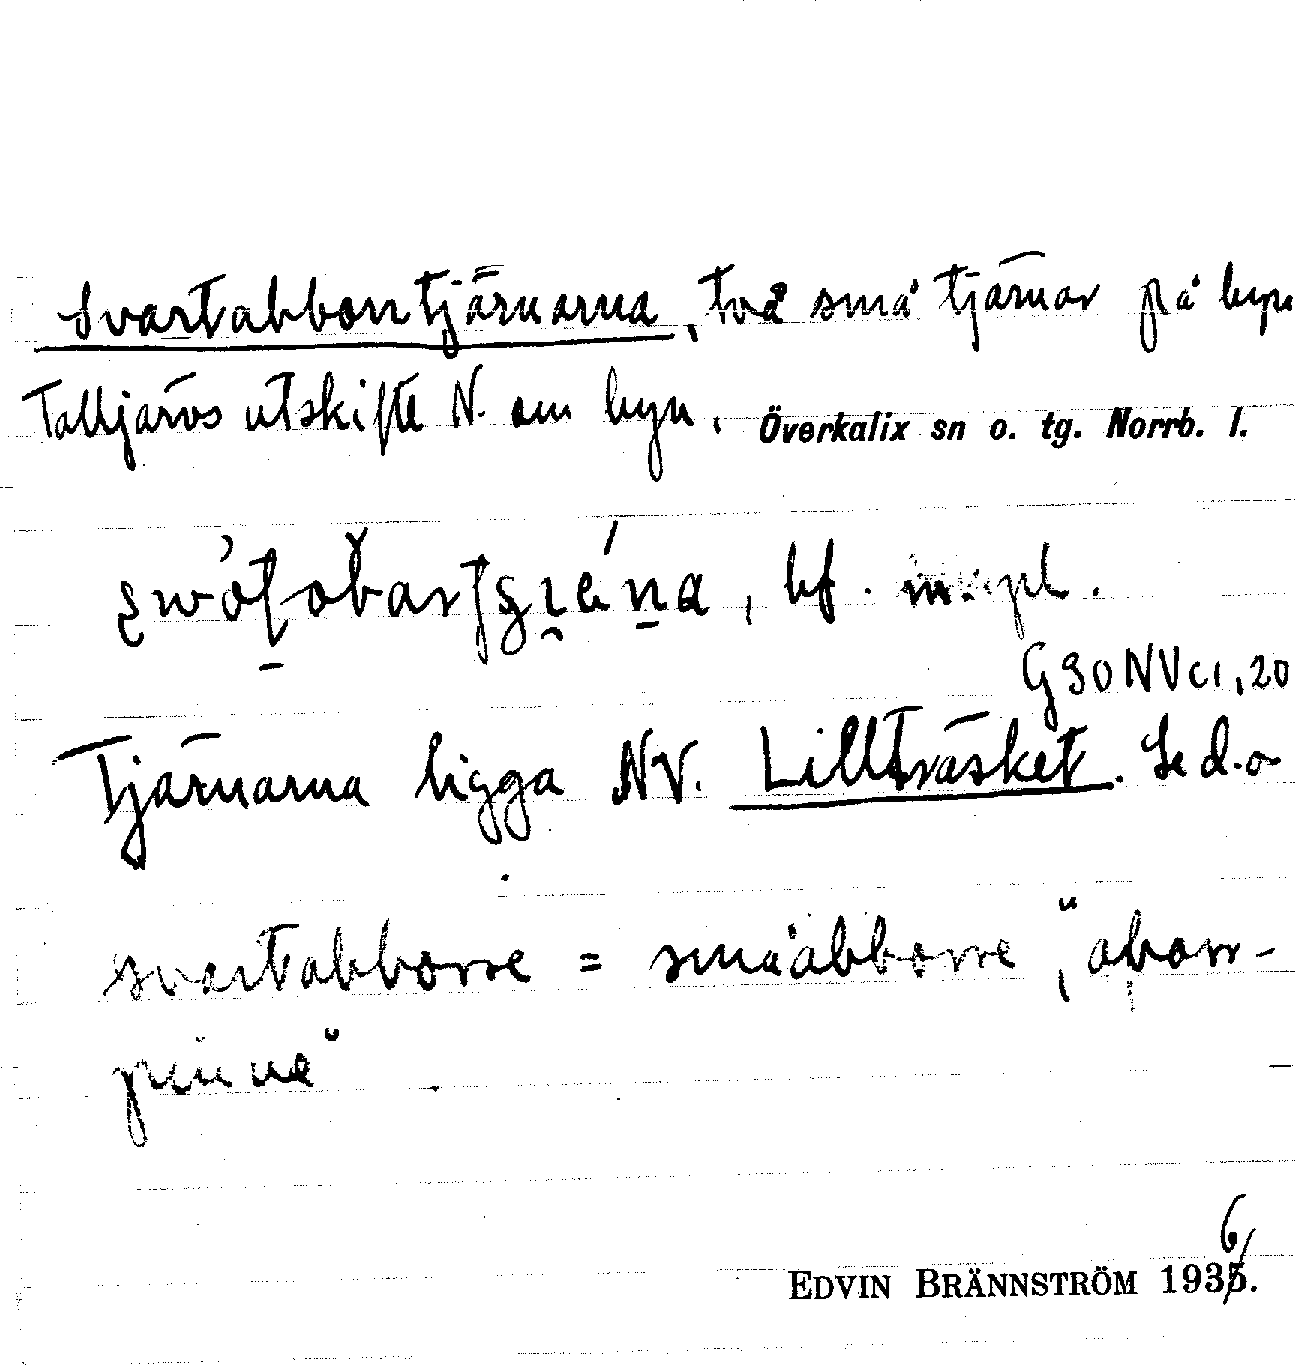 Svartabborrtjärnarna, två små tjärnar på byn
Talljärvs utskifte N. om byn. Överkalix sn o. tg. Norrb. l.
bf. pl.
G 30 NV c1, 20
Tjärnarna ligga NV. Lillträsket. Se d.o
svartabborre = småabborre, "aborr-
pinne"
6
EDVIN BRÄNNSTRÖM 1935.